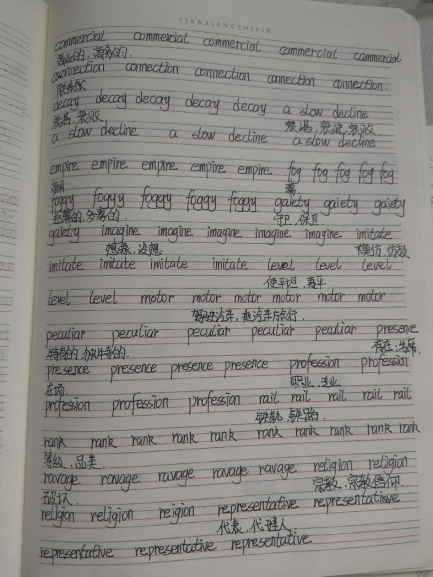 TIANXIANGZHIPIN
commercial commercial commercial commercial commercial
商业的,商务的.
connection connection connection connection connection.
联系
decay decay decay decay decay a slow decline
衰退,衰败 衰退,衰退,衰败.
a slow decline a slow decline a slow decline
empire empire empire empire empire fog fog fog fog fog
雾
foggy foggy foggy foggy foggy gaiety gaiety gaiety
多雾的.
gaiety imagine imagine imagine imagine imagine imitate
想象,设想. 模仿,仿效
imitate imitate imitate imitate level level level
使平坦,
level level motor motor motor motor motor
驾驶汽车,乘汽车旅行.
peculiar peculiar peculiar peculiar peculiar presence
特有的,
presence presence presence presence profession profession
在场. 职业,专业
profession profession profession rail rail rail rail rail
铁轨,铁路.
rank rank rank rank rank rank rank rank rank
等级,品类.
ravage ravage ravage ravage ravage religion religion
破坏. 宗教,宗教信仰.
religion religion reigion representative representatiove
代表,代理人
representative representative representative